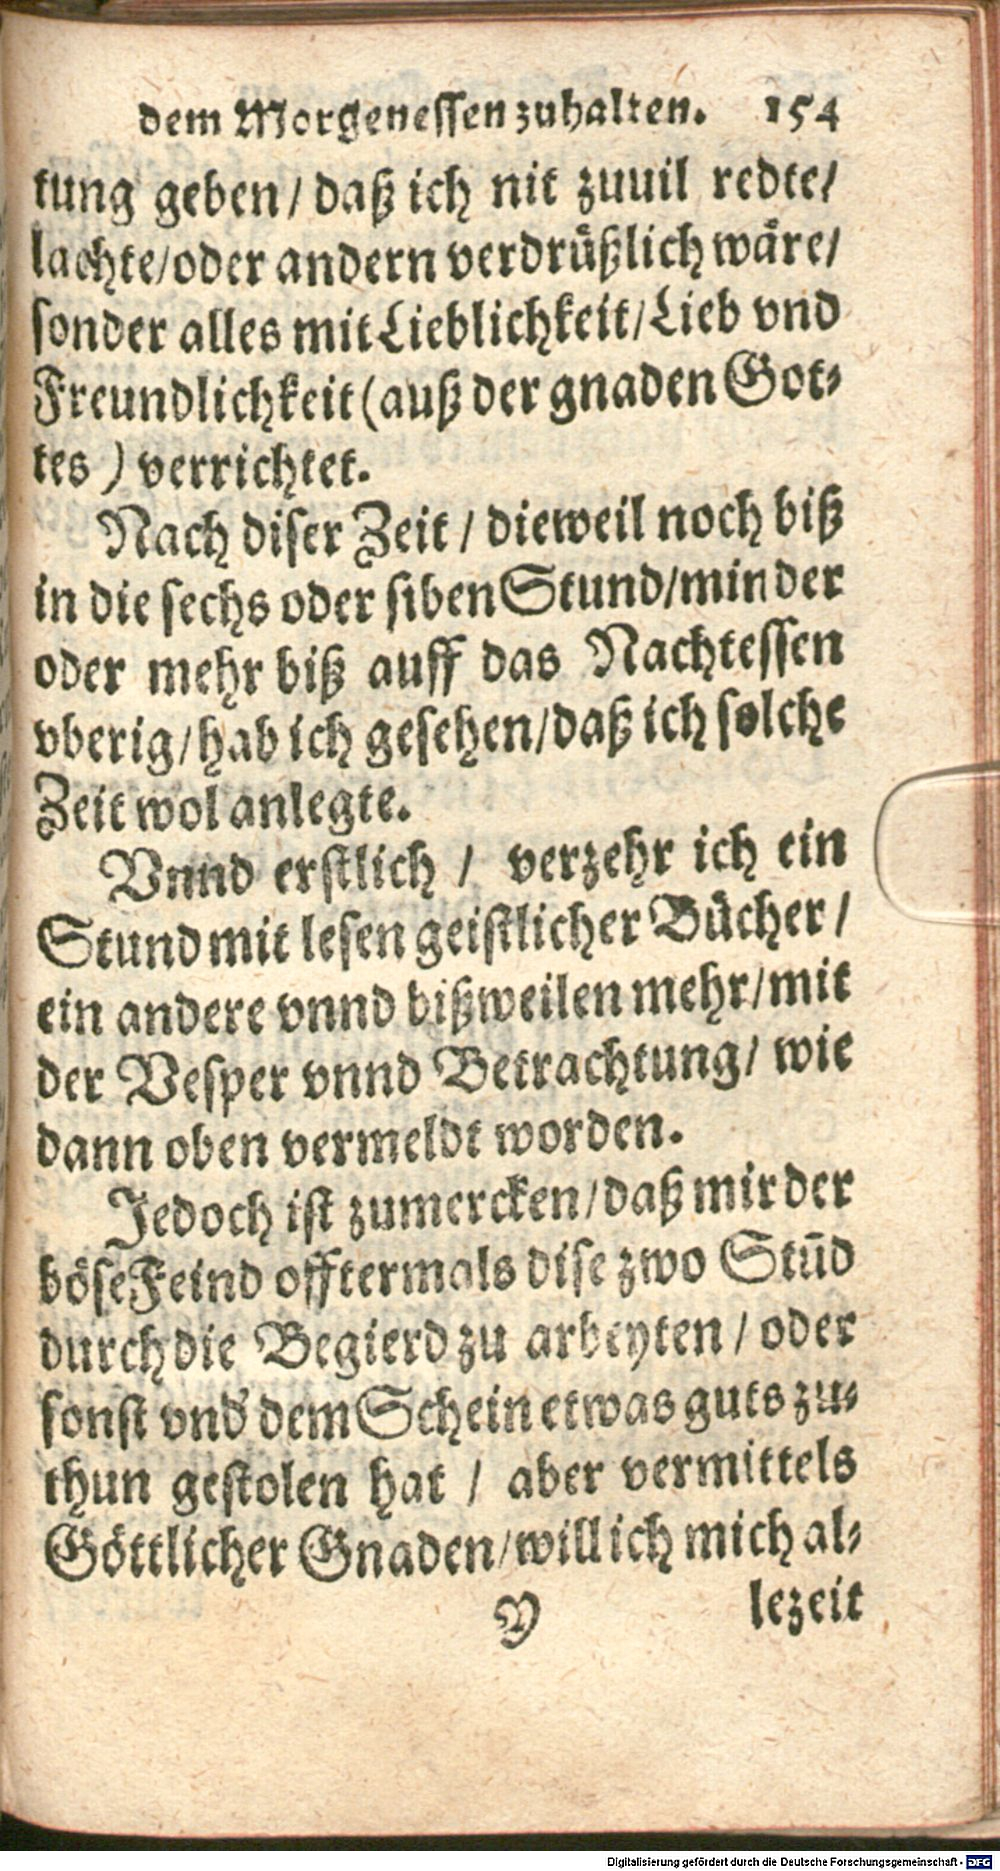 dem Morgenessen zuhalten. 154
tung geben / daß ich nit zuuil redte/
lachte/oder andern verdrüßlich wäre/
sonder alles mit Lieblichkeit/Lieb vnd
Freundlichkeit (auß der gnaden Got-
tes ) verrichtet.
Nach diser Zeit / dieweil noch biß
in die sechs oder siben Stund/minder
oder mehr biß auff das Nachtessen
vberig/hab ich gesehen/daß ich solche
Zeit wol anlegte.
Vnnd erstlich / verzehr ich ein
Stund mit lesen geistlicher Bücher /
ein andere vnnd bißweilen mehr/mit
der Vesper vnnd Betrachtung/ wie
dann oben vermeldt worden.
Jedoch ist zumercken/daß mir der
böse Feind offtermals dise zwo Stūd
durch die Begierd zu arbeyten / oder
sonst vnd' dem Schein etwas guts zu-
thun gestolen hat / aber vermittels
Göttlicher Gnaden/will ich mich al-
V lezeit
Digitalisierung gefördert durch die Deutsche Forschungsgemeinschaft - DFG